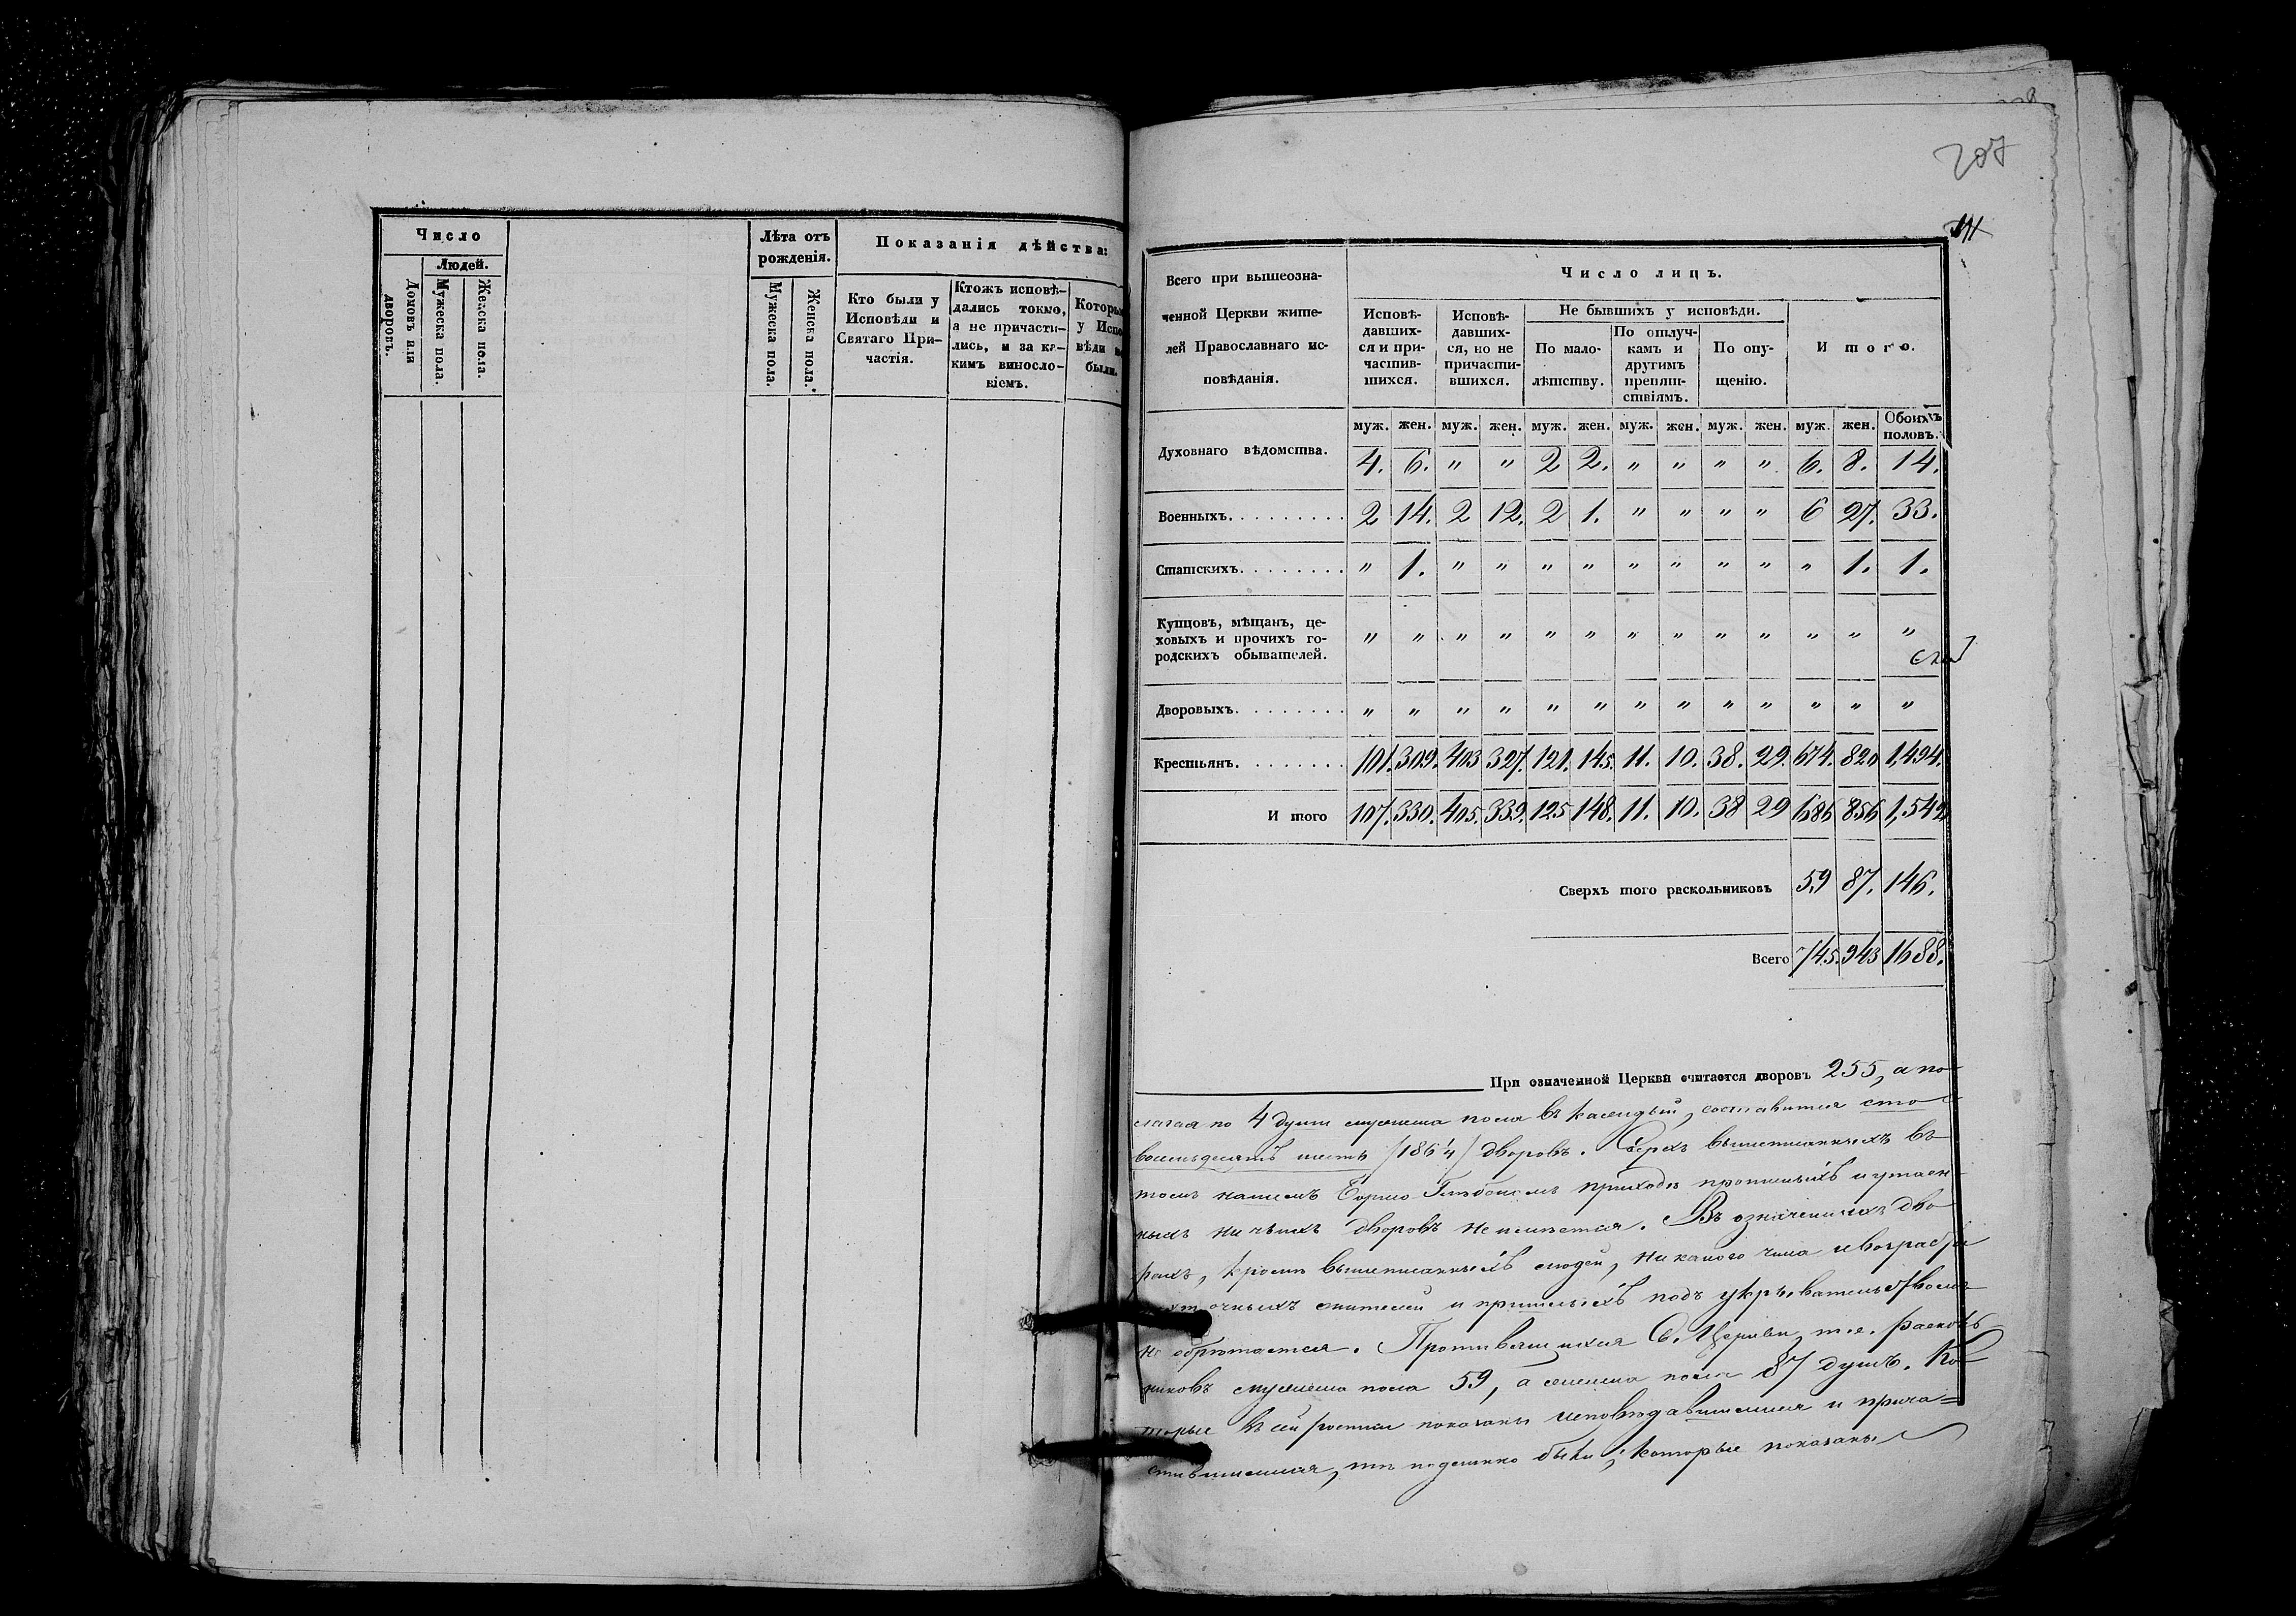 Число
Людей.
Домовъ или дворовъ.
Мужеска пола.
Женска пола.
Лѣта отъ
рожденія.
Мужеска пола.
Женска пола.
Показанія дѣйства:
Кто были у
Исповѣди и
Святаго При-
частія.
Ктожъ исповѣ-
дались токмо,
а не причасти-
лись, и за ка-
кимъ винослo-
віемъ.
Которые
у Испо
вѣди не
были.
207
Всего при вышеозна-
ченной Церкви жите-
лей Православнаго ис-
повѣданія.
Число лицъ.
Исповѣ-
давших-
ся и при-
частив-
шихся.
Исповѣ-
давших-
ся, но не
причасти-
вшихся.
Не бывшихъ у исповѣди.
По мало-
лѣтству.
По отлуч-
камъ и
другимъ
препят-
ствіямъ.
По опу-
щенію.
Итого.
муж. жен. муж. жен. муж. жен. муж. жен. муж. жен. муж. жен. Обоихъ половъ.
Духовнаго вѣдомства. 4. 6. " " 2 2. " " " " 6. 8. 14.
Военныхъ. 2 14. 2 12. 2 1. " " " " 6 27. 33.
Статскихъ. " 1. " " " " " " " " " 1. 1.
Купцовъ, мѣщанъ, це-
ховыхъ и прочихъ го-
родскихъ обывателей. " " " " " " " " " " " " "
Дворовыхъ. " " " " " " " " " " " " "
Крестьянъ. 101. 309. 403 327. 121. 145. 11. 10. 38. 29. 674. 820 1,494.
Итого 107. 330. 405. 339. 125 148. 11. 10. 38 29 686 856 1,542
Сверхъ того раскольниковъ 59 87. 146.
Всего 745. 943 1688.
При означенной Церкви считается дворовъ 255, а по-
лагая по 4 души мужеска пола въ каждый, составится сто
восемьдесятъ шесть /186¼/ дворовъ. Сверхъ вышеписанныхъ въ
томъ нашемъ приходѣ прописныхъ и утаен-
ныхъ ни чьихъ дворовъ не имѣется. Въ означенныхъ дво-
рахъ, кромѣ вышеписанныхъ людей, никакого чина и возраста
жителей и пришлыхъ подъ укрывательствомъ
не обрѣтается. Противящихся С. Церкви, т.е. расколь-
никовъ мужеска пола 59, а женска пола 87 душъ. Ко-
торые въ сей росписи показаны исповѣдавшимися и прича-
стившимися, тѣ подлинно были; которые показаны